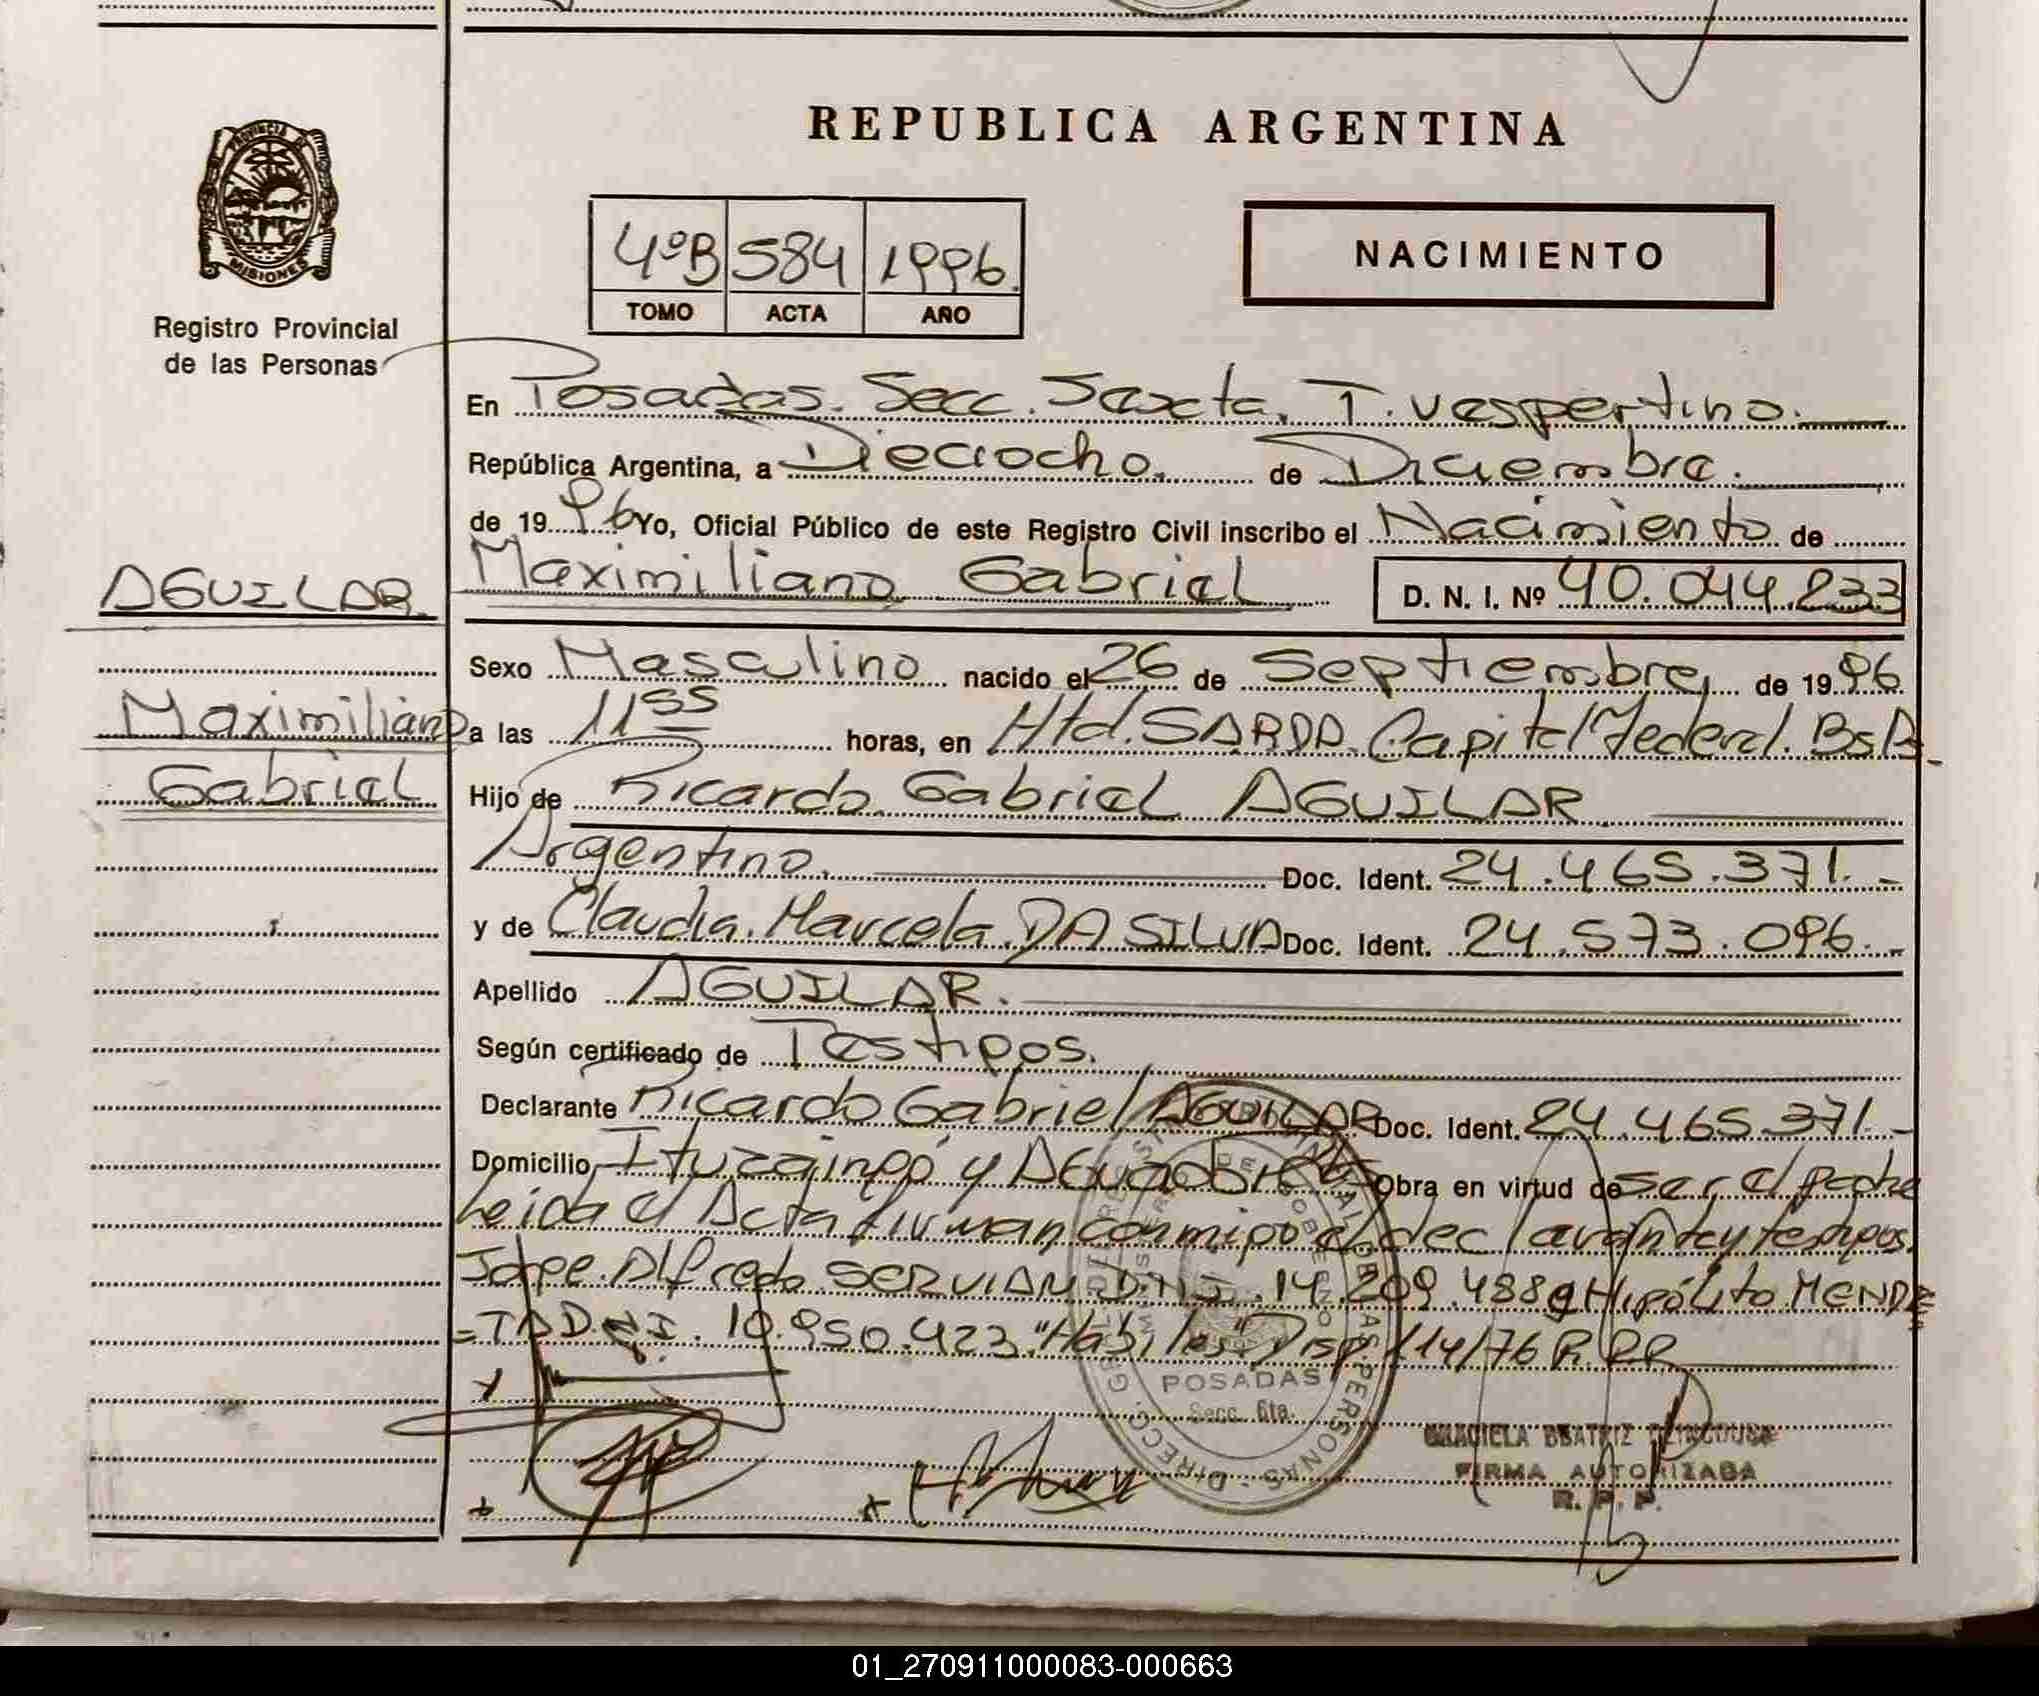 REPUBLICA ARGENTINA
PROVINCIA DE
MISIONES
Registro Provincial
de las Personas
4ºB 584 1996.
TOMO ACTA AÑO
NACIMIENTO
En Posadas. Secc. Sexta. T. vespertino.
República Argentina, a Dieciocho. de Diciembre.
de 1996 Yo, Oficial Público de este Registro Civil inscribo el Nacimiento de
AGUILAR.
Maximiliano Gabriel D. N. I. Nº 40.044.233
Sexo Masculino nacido el 26 de Septiembre, de 1996
Maximiliano
Gabriel
a las 11 55 horas, en Htal. SARDA. Capital Federal. Bs As.
Hijo de Ricardo Gabriel AGUILAR
Argentino. Doc. Ident. 24.465.371.-
y de Claudia. Marcela. DA SILVA Doc. Ident. 24.573.096.-
Apellido AGUILAR.
Según certificado de Testigos.
Declarante Ricardo Gabriel AGUILAR Doc. Ident. 24.465.371.-
Domicilio Ituzaingó y Obra en virtud de ser el padre
Leida el Acta firman conmigo el declarante y testigos.
Jorge. Alfredo. SERVIAN D.N.I. 14.209.488 e Hipólito MENDE
=TA D.N.I. 10.950.423 "Habiles" Disp 114/76 R.P.P
POSADAS
Secc. 6ta.
GRACIELA BEATRIZ
FIRMA AUTORIZADA
R. P. P.
01_270911000083-000663